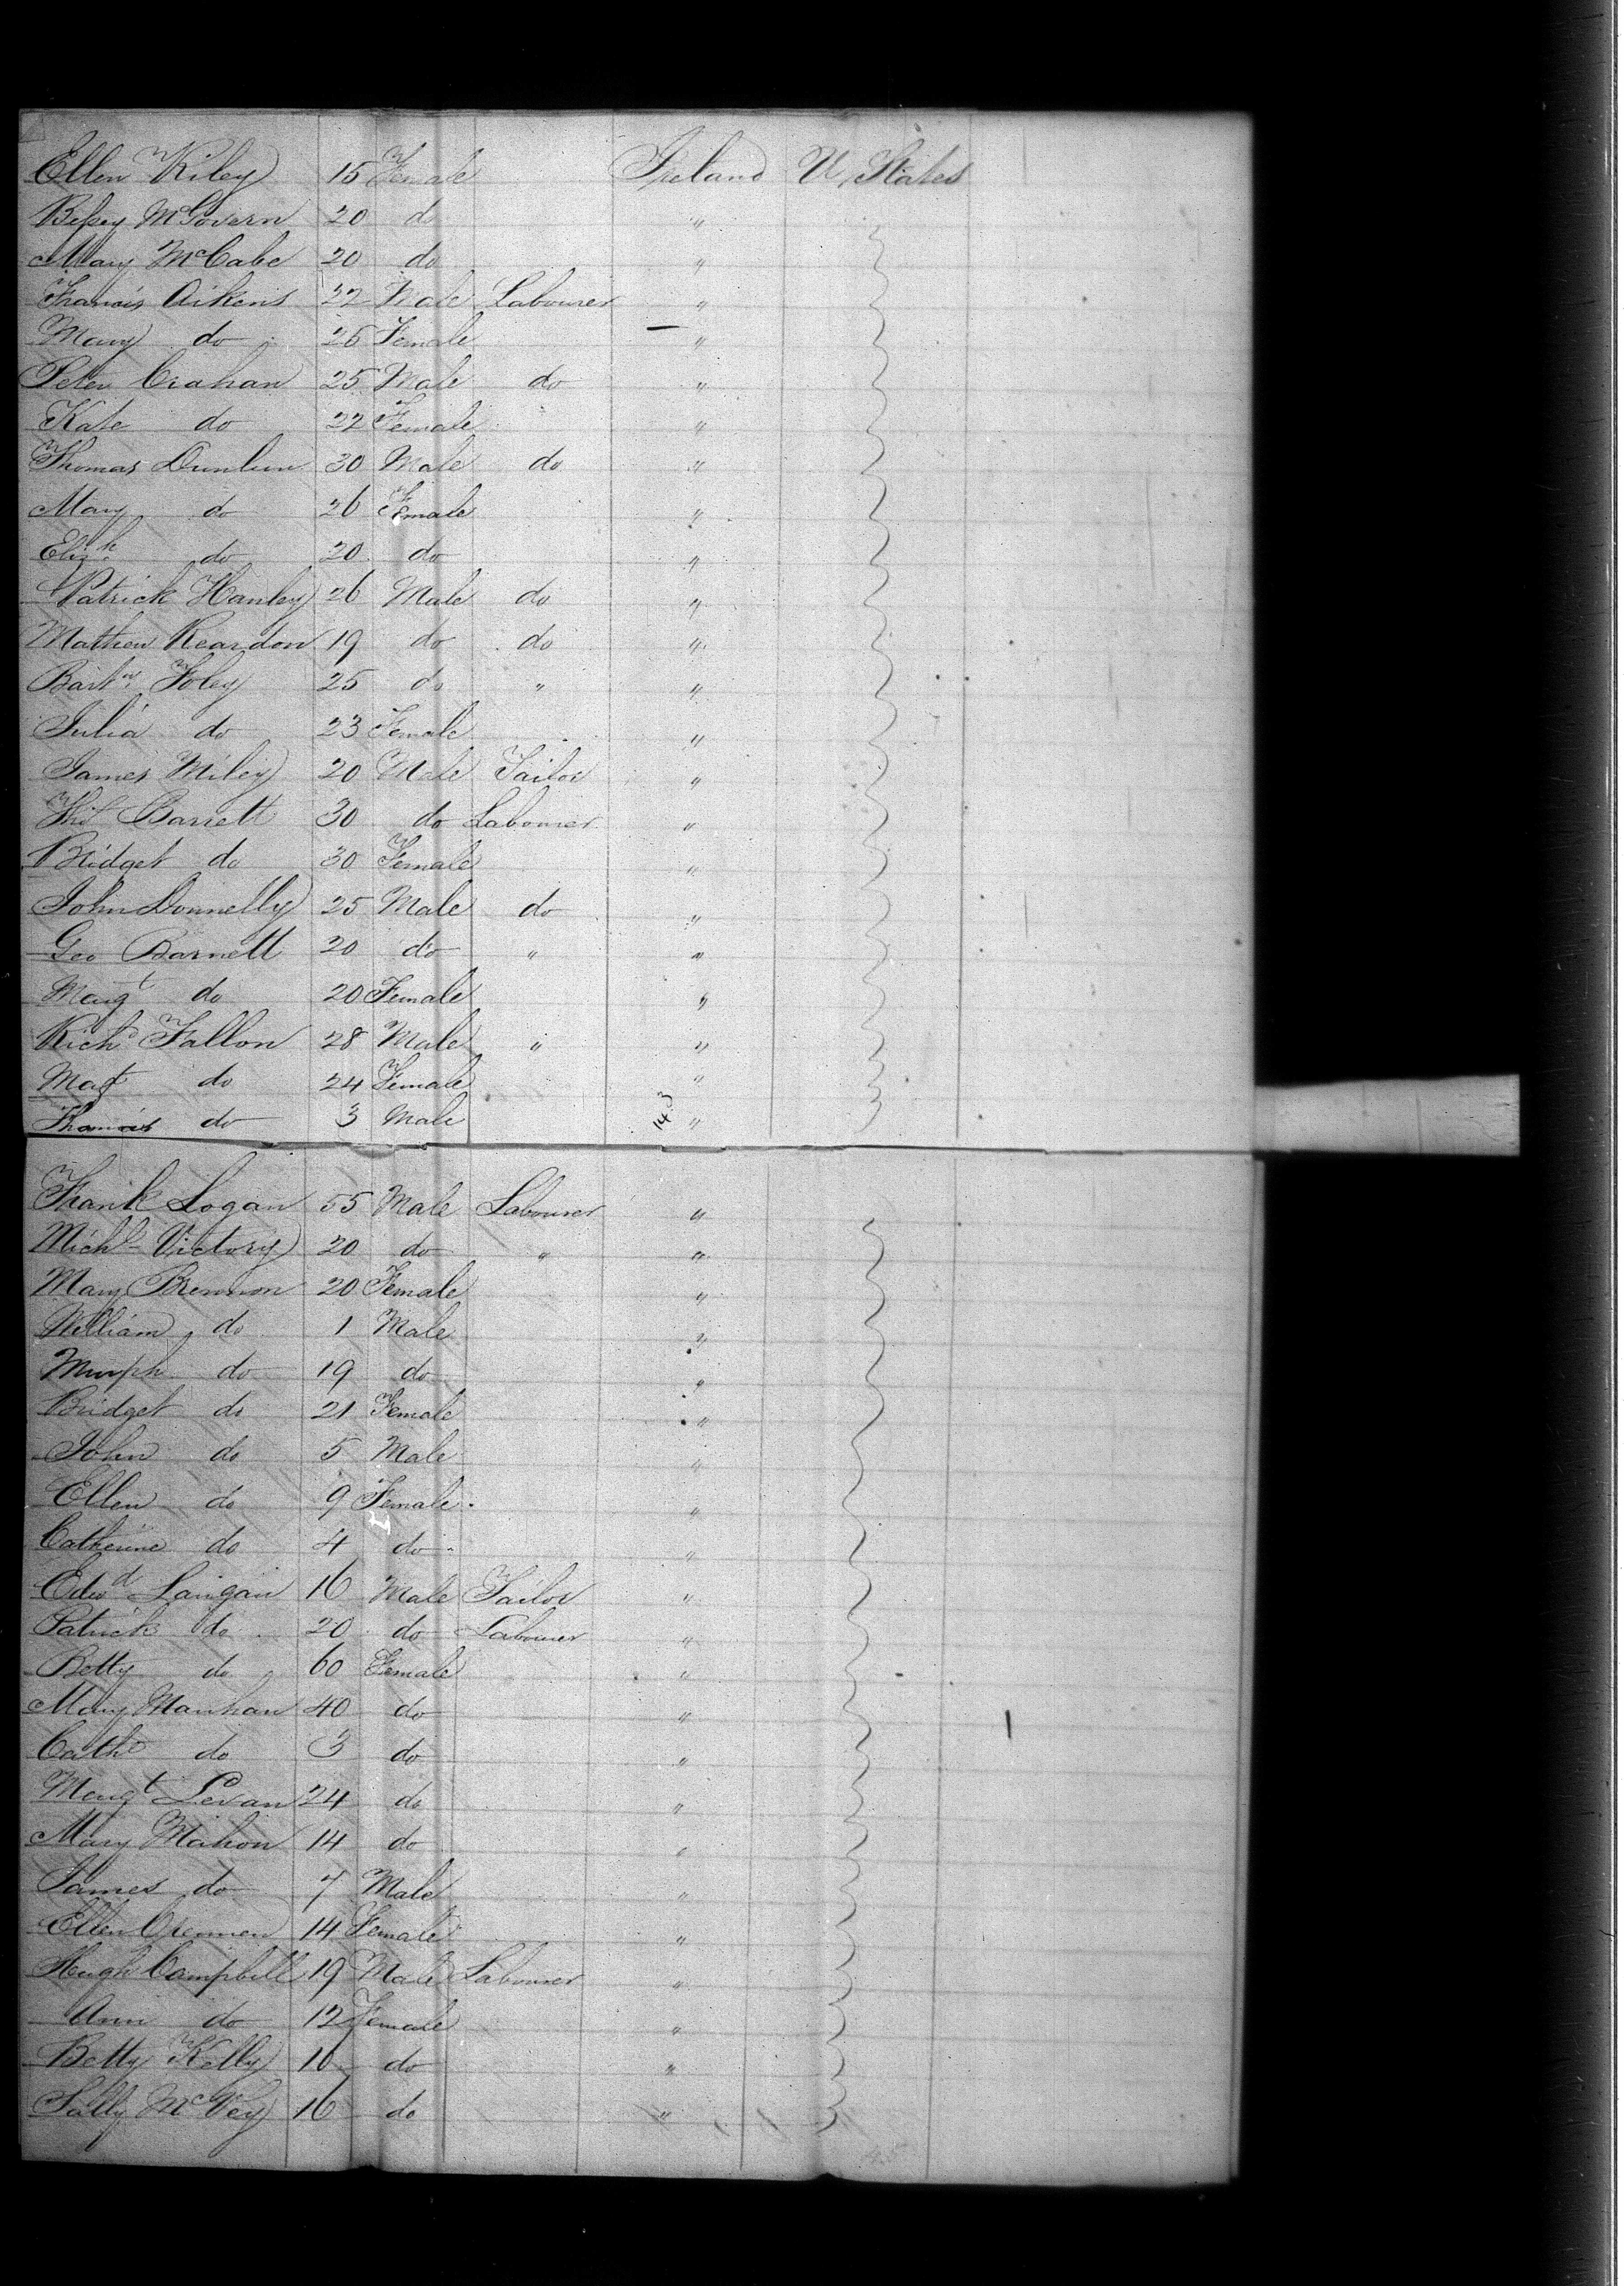 Ellen Kiley 15 Female Ireland U. States
Bessy McGovern 20 do "
Mary McCabe 20 do "
Francis Aikens 22 Male Labourer "
Mary do 26 Female "
Peter Crahan 25 Male do "
Kate do 22 Female "
Thomas Dunlun 30 Male do "
Mary do 26 Female "
Elizh do 20 do "
Patrick Hanley 26 Male do "
Mathew Reardon 19 do do "
Bartw Foley 25 do " "
Julia do 23 Female "
James Miley 20 Male Tailor "
Thos Barrett 30 do Labourer "
Bridget do 30 Female "
John Donnelly 25 Male do "
Geo Barnett 20 do " "
Margt do 20 Female "
Richd Fallon 28 Male " "
Magt do 24 Female "
do 3 Male 143 "
Frank Logan 55 Male Labourer "
Michl Victory 20 do " "
Mary Brennon 20 Female "
William do 1 Male "
Murph do 19 do "
Bridget do 21 Female "
John do 5 Male "
Ellen do 9 Female "
Catherine do 4 do "
Edwd Langan 16 Male Tailor "
Patrick do 20 do Labourer "
Betty do 60 Female "
Mary Manhan 40 do "
Cathe do 3 do "
Margt Levan 24 do "
Mary Mahon 14 do "
James do 7 Male "
Ellen Crennen 14 Female "
Hugh Campbell 19 Male Labourer "
Ann do 12 Female "
Betty Kelly 10 do "
Sally McVey 16 do "